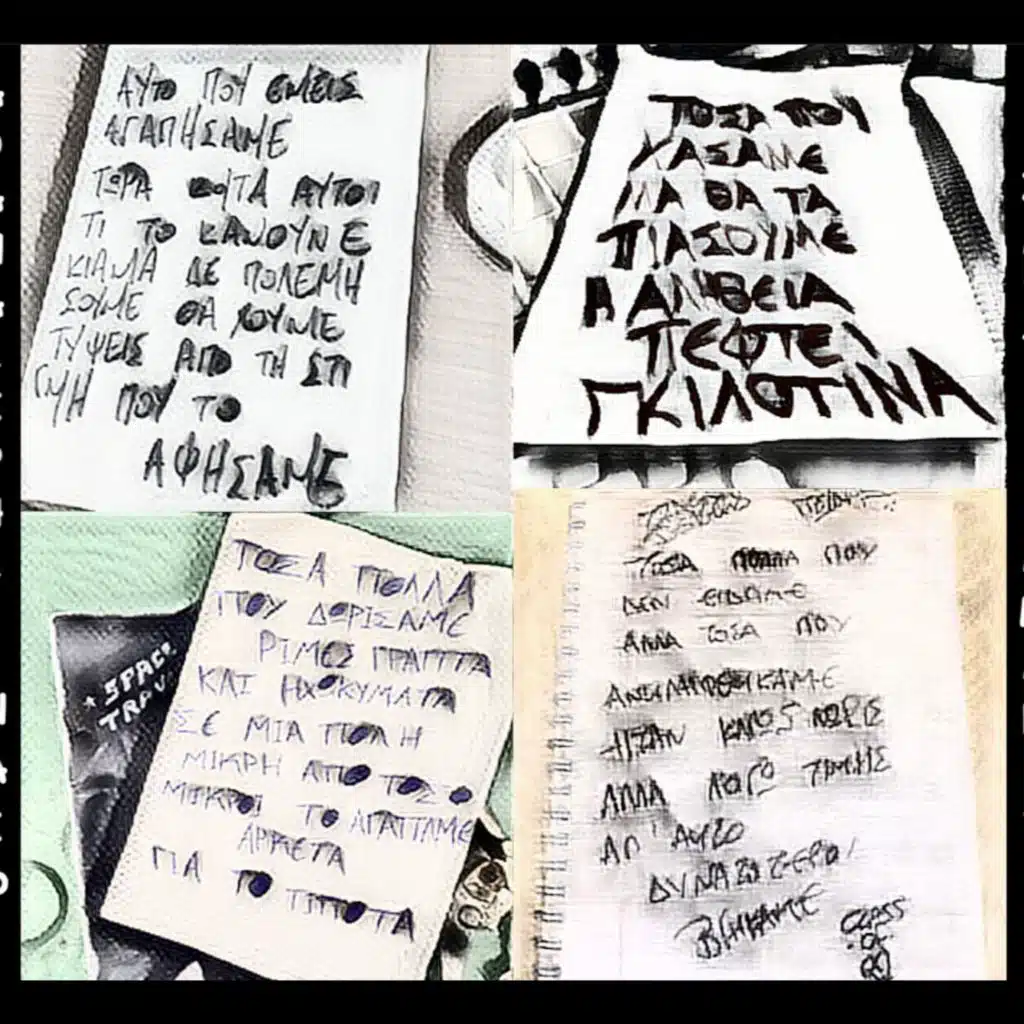 ΑΥΤΟ ΠΟΥ ΕΜΕΙΣ
ΑΓΑΠΗΣΑΜΕ
ΤΩΡΑ ΚΟΙΤΑ ΑΥΤΟΙ
ΤΙ ΤΟ ΚΑΝΟΥΝΕ
ΚΙ ΑΜΑ ΔΕ ΠΟΛΕΜΗ
ΣΟΥΜΕ ΘΑ ΧΟΥΜΕ
ΤΥΨΕΙΣ ΑΠΟ ΤΗ ΣΤΙ
ΓΜΗ ΠΟΥ ΤΟ
ΑΦΗΣΑΜΕ
ΤΟΣΑ ΠΟΥ
ΧΑΣΑΜΕ
ΜΑ ΘΑ ΤΑ
ΠΙΑΣΟΥΜΕ
Η ΑΛΗΘΕΙΑ
ΠΕΦΤΕΙ
ΓΚΙΛΟΤΙΝΑ
ΤΟΣΑ ΠΟΛΛΑ
ΠΟΥ ΔΩΡΙΣΑΜΕ
ΡΙΜΕΣ ΓΡΑΠΤΑ
ΚΑΙ ΗΧΟΚΥΜΑΤΑ
ΣΕ ΜΙΑ ΠΟΛΗ
ΜΙΚΡΗ ΑΠΟ ΤΟΣΟ
ΜΙΚΡΟΙ ΤΟ ΑΓΑΠΑΜΕ
ΑΡΚΕΤΑ
ΓΙΑ ΤΟ ΤΙΠΟΤΑ
SPACE
TRAV
ΤΟΣΑ ΠΟΛΛΑ ΠΟΥ
ΔΕΝ ΕΙΔΑΜΕ
ΑΛΛΑ ΤΟΣΑ ΠΟΥ
ΑΝΤΙΛΗΦΘΗΚΑΜΕ
ΗΤΑΝ ΚΑΠΩΣ ΝΩΡΙΣ
ΑΛΛΑ ΛΟΓΩ ΤΙΜΗΣ
ΑΠ' ΑΥΤΟ
ΔΥΝΑΤΟΤΕΡΟΙ
ΒΓΗΚΑΜΕ
CLASS